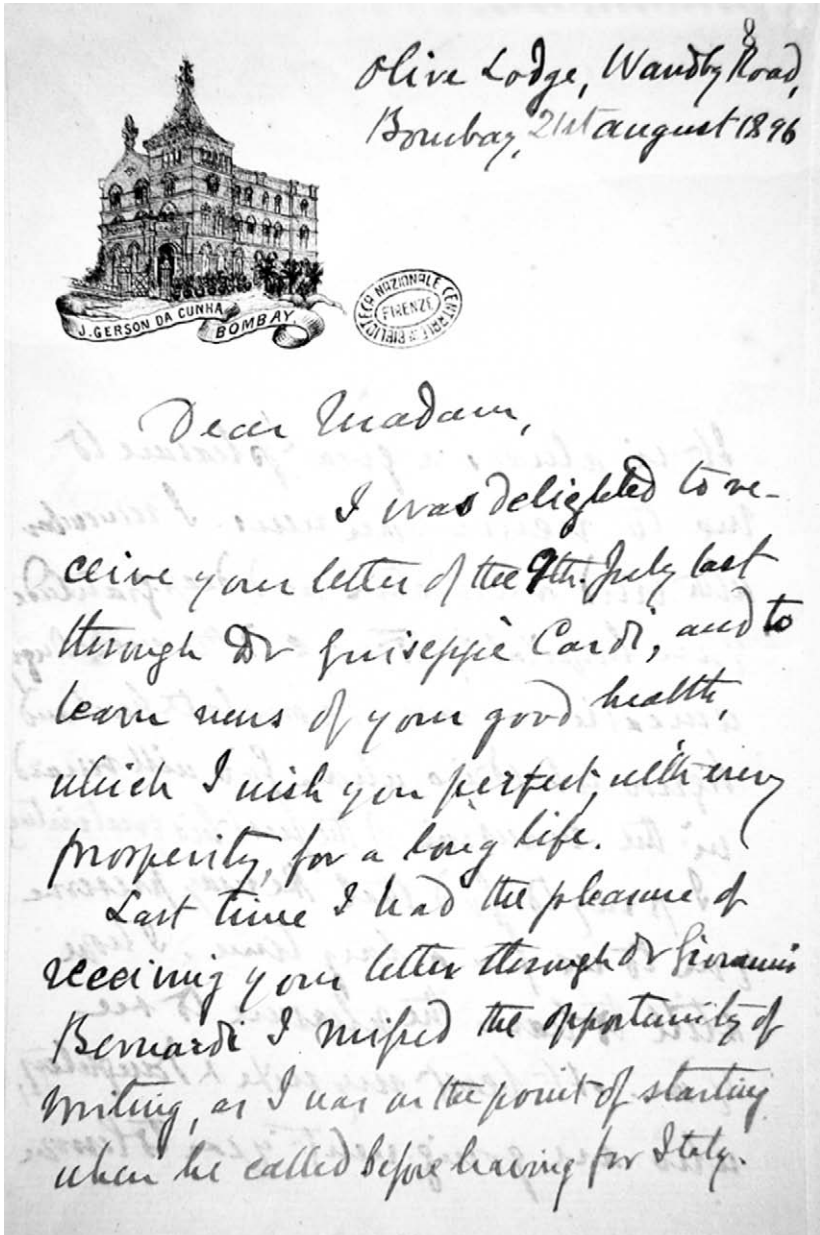 8
Olive Lodge, Wandby Road,
Bombay, 21st august 1896
J. GERSON DA CUNHA
BOMBAY.
BIBLIOTECA NAZIONALE CENTRALE
FIRENZE
Dear Madam,
I was delighted to re-
ceive your letter of the 9th. July last
through Dr Guiseppie Cardi, and to
learn news of your good health,
which I wish you perfect, with every
prosperity, for a long life.
Last time I had the pleasure of
receiving your letter through Dr Giovanni
Bernardi I missed the opportunity of
writing, as I was on the point of starting
when he called before leaving for Italy.